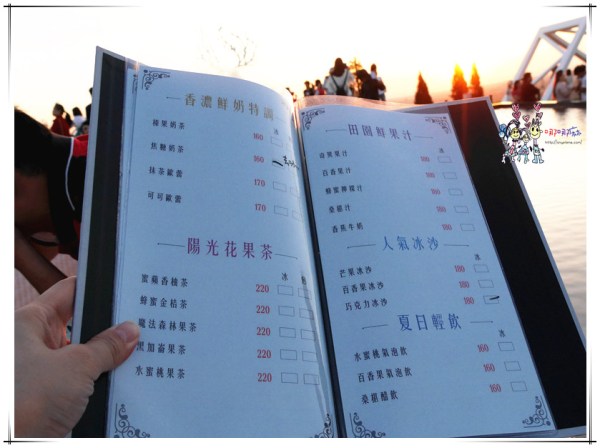 香濃鮮奶特調
冰
榛果奶茶 160
焦糖奶茶 160
抹茶歐蕾 170
可可歐蕾 170
陽光花果茶
冰
蜜蘋香柚茶 220
蜂蜜金桔茶 220
魔法森林果茶 220
黑加崙果茶 220
水蜜桃果茶 220
田園鮮果汁
冰
百香果汁 180
蜂蜜檸檬汁 180
桑椹汁 180
香蕉牛奶 180
人氣冰沙
冰
芒果冰沙 180
百香果冰沙 180
巧克力冰沙 180
夏日輕飲
冰
水蜜桃氣泡飲 160
百香果氣泡飲 160
桑椹醋飲 160